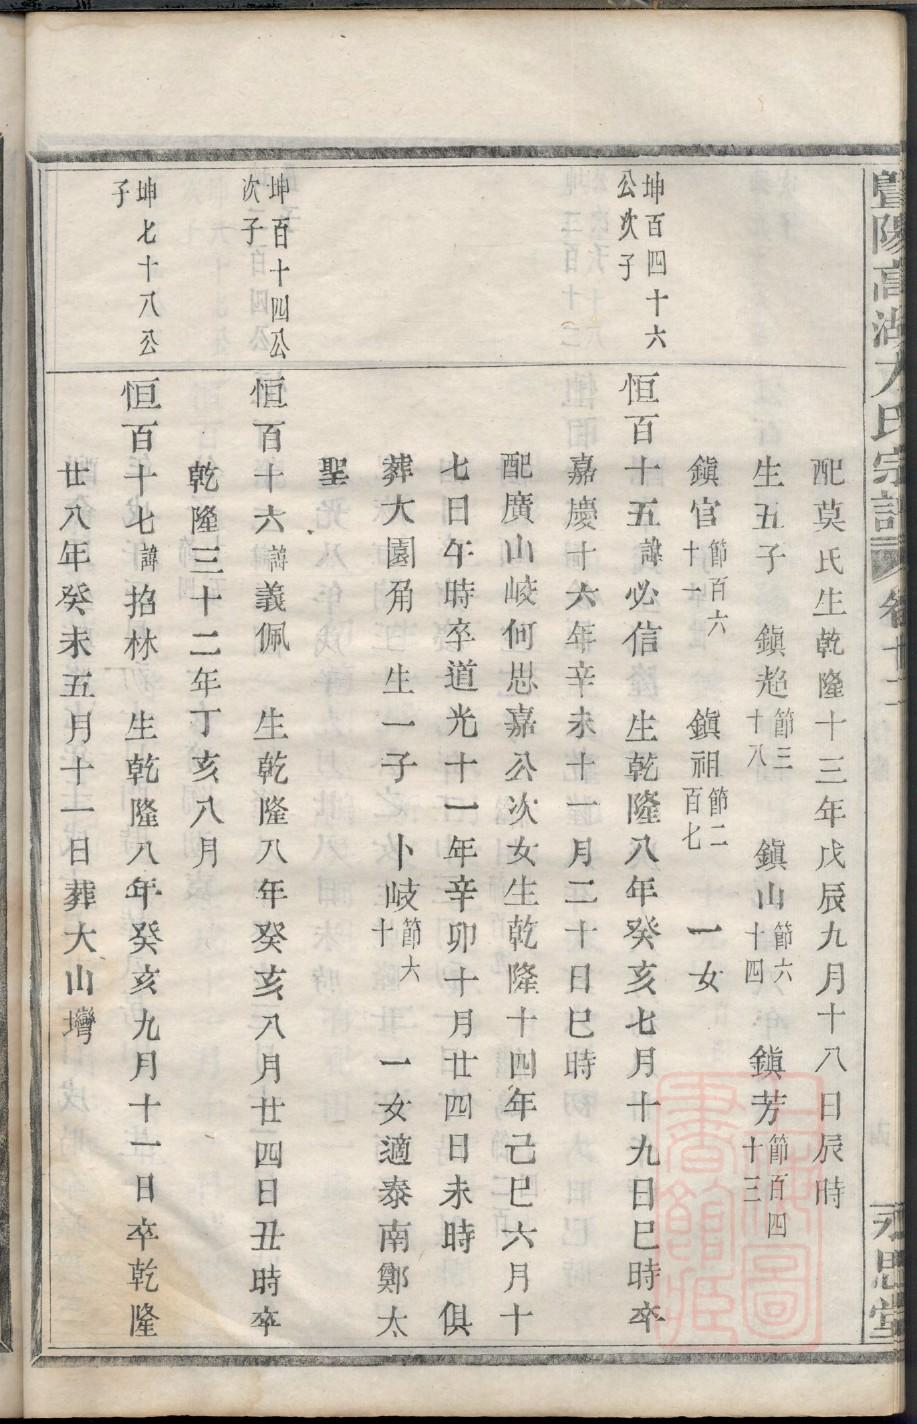 暨陽高湖方氏宗譜 卷廿二 永思堂
配莫氏生乾隆十三年戊辰九月十八日辰時
生五子 鎮趙節三十八 鎮山節六十四 鎮芳節百四十三
鎮官節百六十一 鎮祖節二百七 一女
坤百四十六公次子
恒百十五諱必信 生乾隆八年癸亥七月十九日巳時卒
嘉慶十六年辛未十一月二十日巳時
配廣山岐何思嘉公次女生乾隆十四年己巳六月十
七日午時卒道光十一年辛卯十月廿四日未時 俱
葬大園角 生一子 卜岐節六十 一女適泰南鄭太
聖
坤百十四公次子
恒百十六諱義佩 生乾隆八年癸亥八月廿四日丑時卒
乾隆三十二年丁亥八月
坤七十八公子
恒百十七諱招林 生乾隆八年癸亥九月十一日卒乾隆
廿八年癸未五月十一日葬大山灣